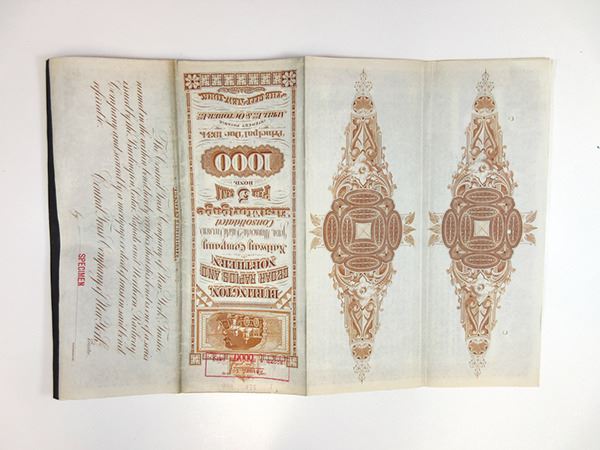 SPECIMEN
0000
BURLINGTON,
CEDAR RAPIDS AND
NORTHERN
Railway Company
Consolidated
First Mortgage
PER 5 CENT
BOND.
1000
Principal Due 1934.
INTEREST PAYABLE
APRIL 1st & OCTOBER 1st
The Central Trust Company of New York, Trustee
named in the within bond hereby certifies that this bond is one of a series
issued by the Burlington, Cedar Rapids and Northern Railway
Company and secured by a mortgage or deed of
Central Trust Company of New York,
By
SPECIMEN